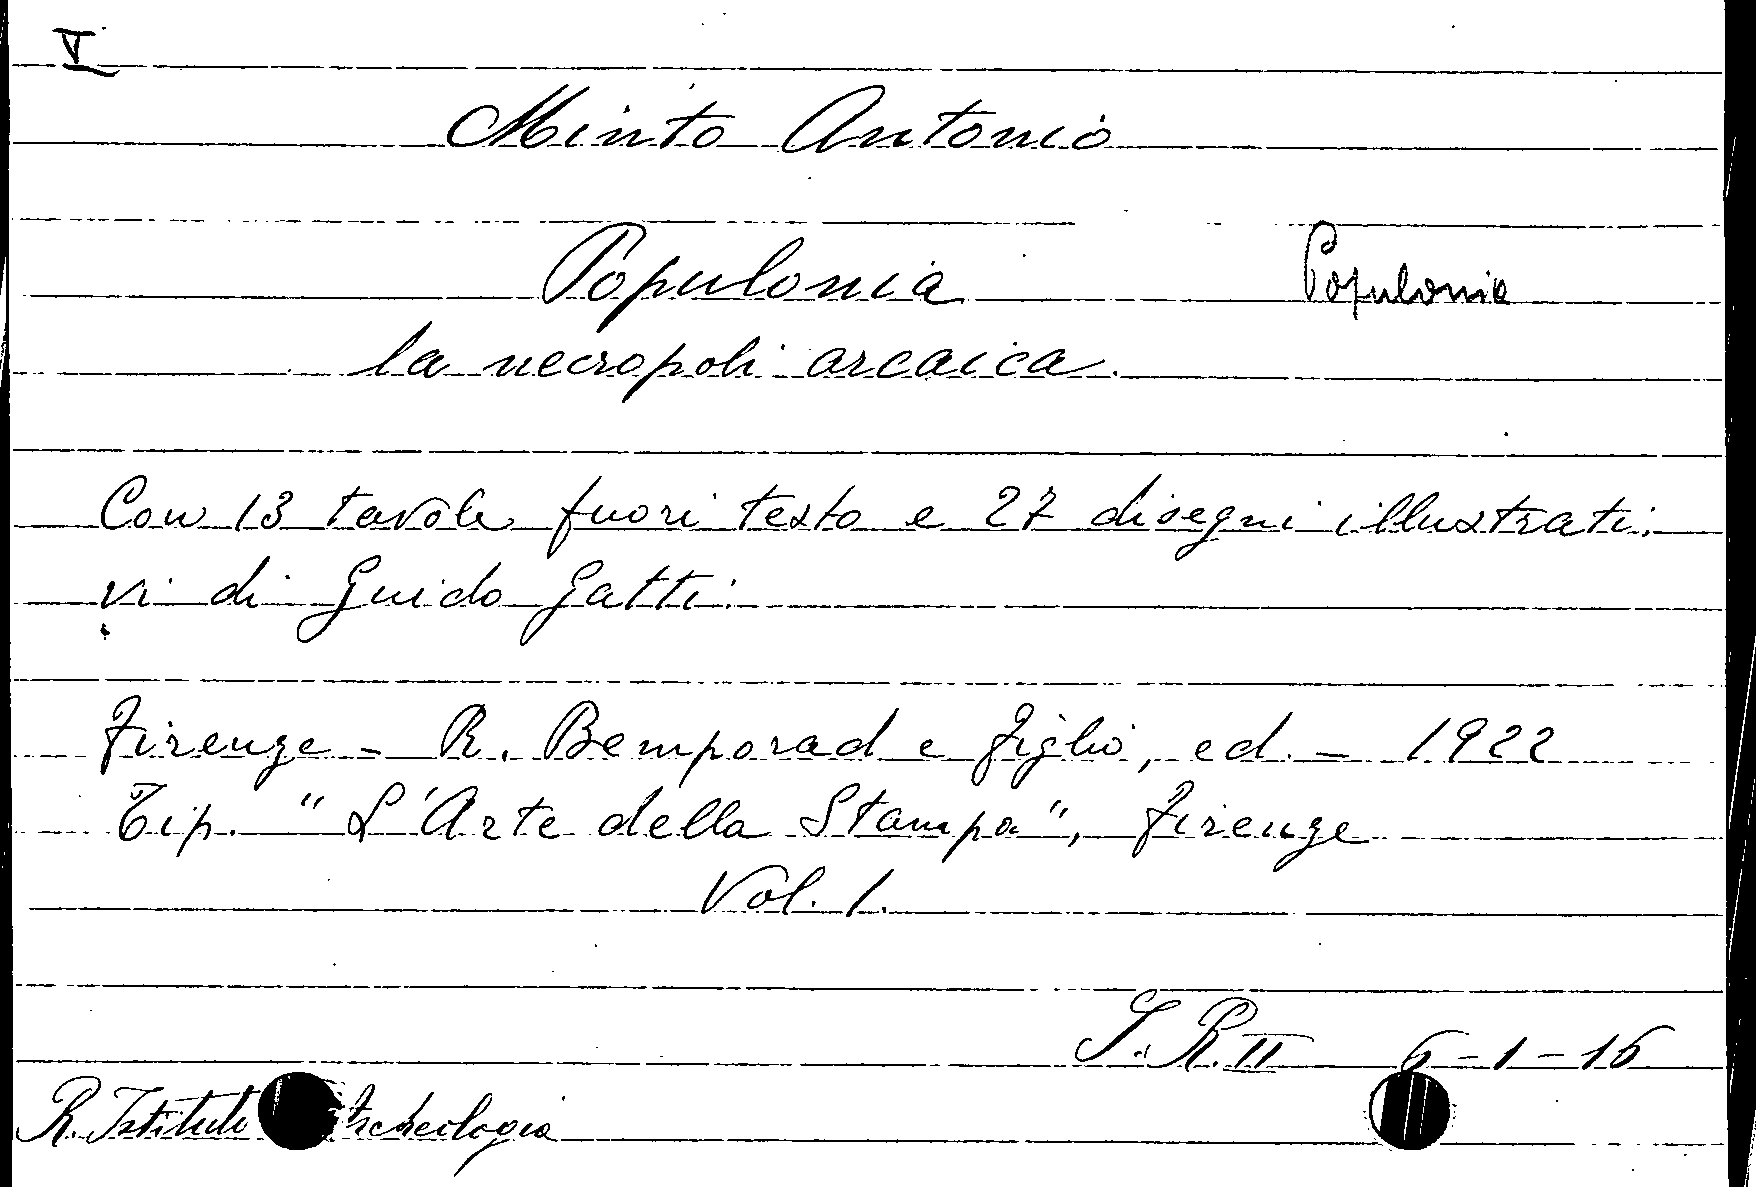 V
Minto Antonio
Populonia Populonia
la necropoli arcaica.
Con 13 tavole fuori testo e 27 disegni illustrati:
vi di Guido Gatti.
Firenze - R. Bemporad e figlio, ed. - 1922
Tip. "L'Arte della Stampa", Firenze
Vol. 1.
S.R. II 6-1-16
R. Istituto Archeologia